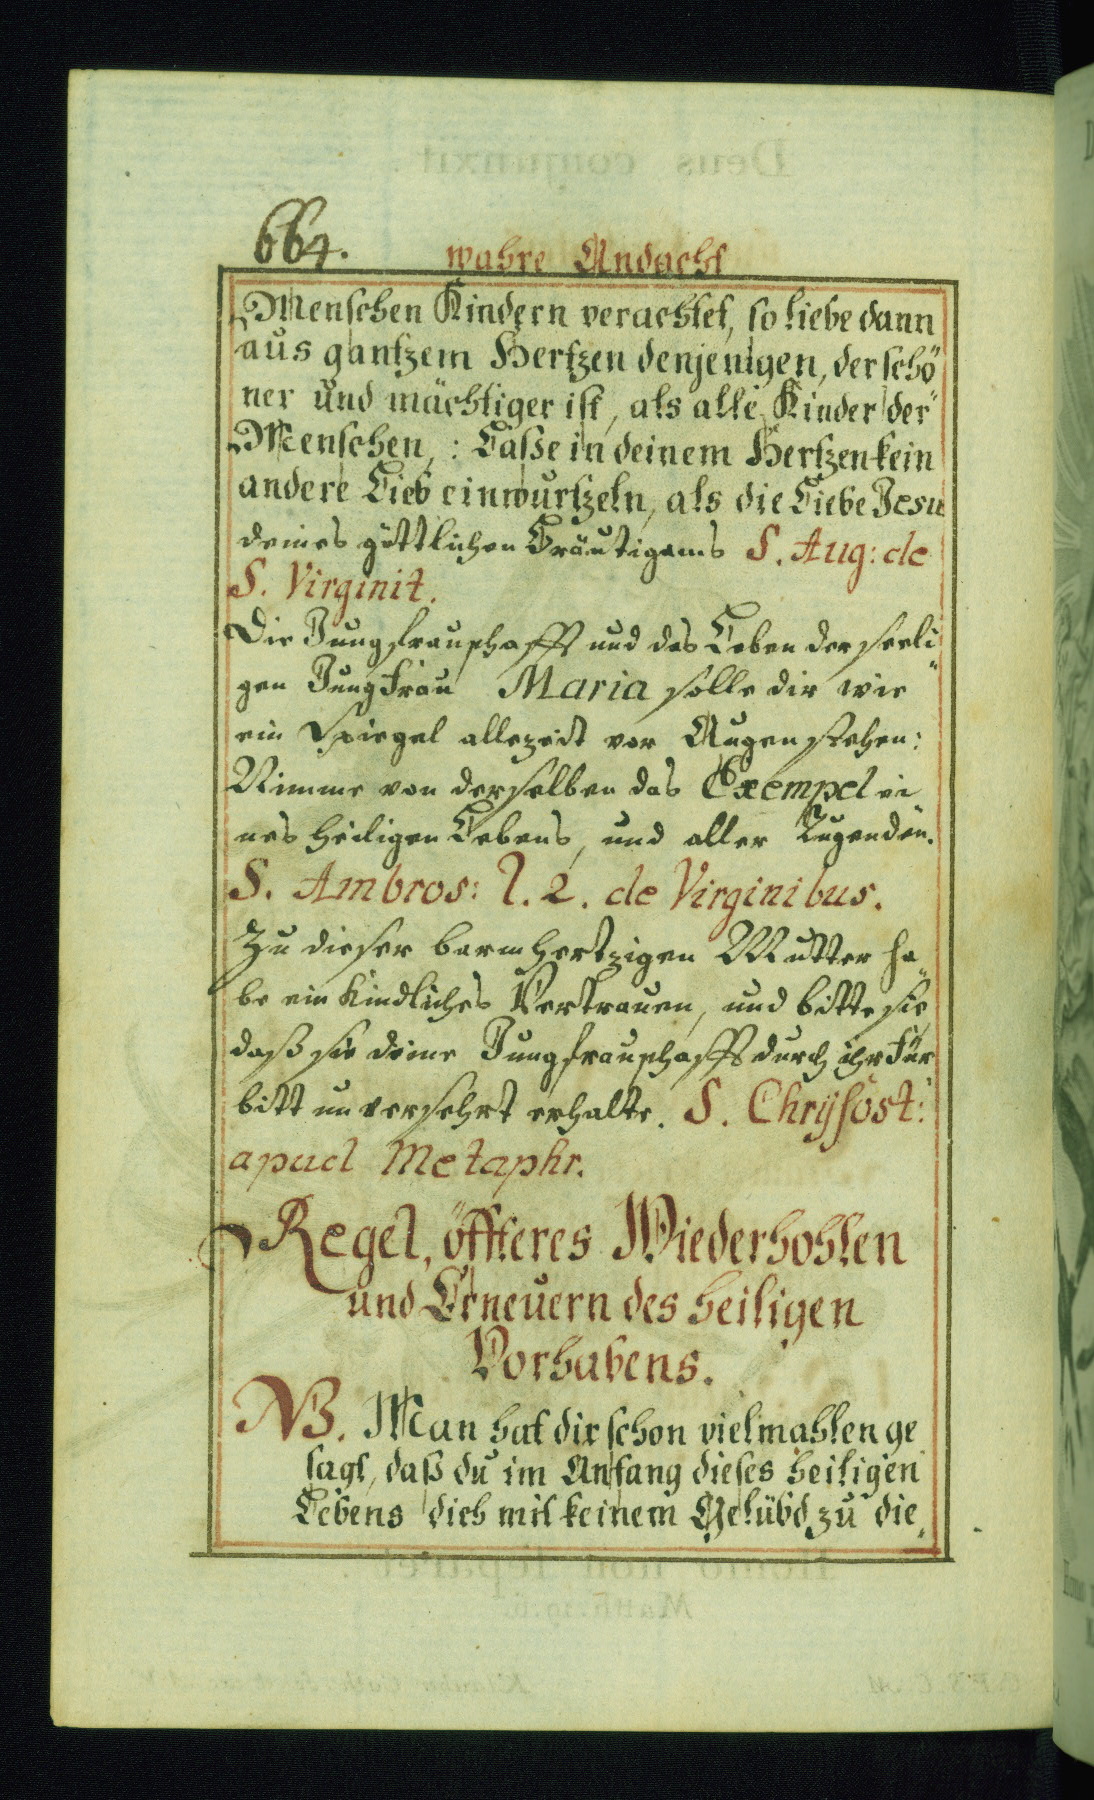 664.
wahre Andacht
Menschen Kindern verachtet, so liebe dann
aus gantzem Hertzen denjenigen, der schö
ner und mächtiger ist, als alle Kinder der
Menschen,: Lasse in deinem Hertzen kein
andere Lieb einwurtzeln, als die Liebe Jesu
deines göttlichen Bräutigams S. Aug: de
S. Virginit.
Die Jungfrauschafft und das Leben der seeli
gen Jungfrau Maria solle dir wie
ein Spiegel allezeit vor Augen stehen:
Nimme von derselben das Exempel ei
nes heiligen Lebens, und aller Tugenden.
S. Ambros: l. 2. de Virginibus.
Zu dieser barmhertzigen Mutter ha
be ein kindliches Vertrauen, und bitte sie,
daß sie deine Jungfrauschafft durch ihr Für
bitt unversehrt erhalte. S. Chrÿsost:
apud Metaphr.
Regel, öffteres Wiederhohlen
und Erneuern des heiligen
Vorhabens.
NB. Man hat dir schon vielmahlen ge
sagt, daß du im Anfang dieses heiligen
Lebens dich mit keinem Gelübd zu die„
Deus conjunxit.
Homo non separet.